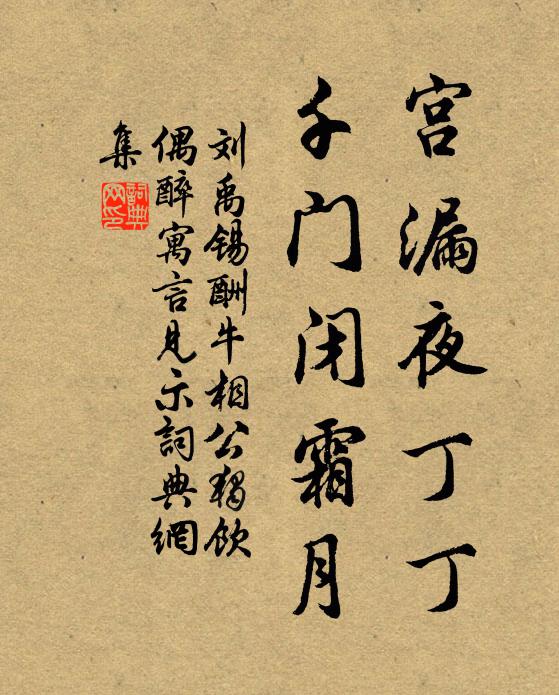 宫漏夜丁丁
千门闭霜月
刘禹锡酬牛相公独饮
偶醉寓言见示詞典網
集
詞典网印